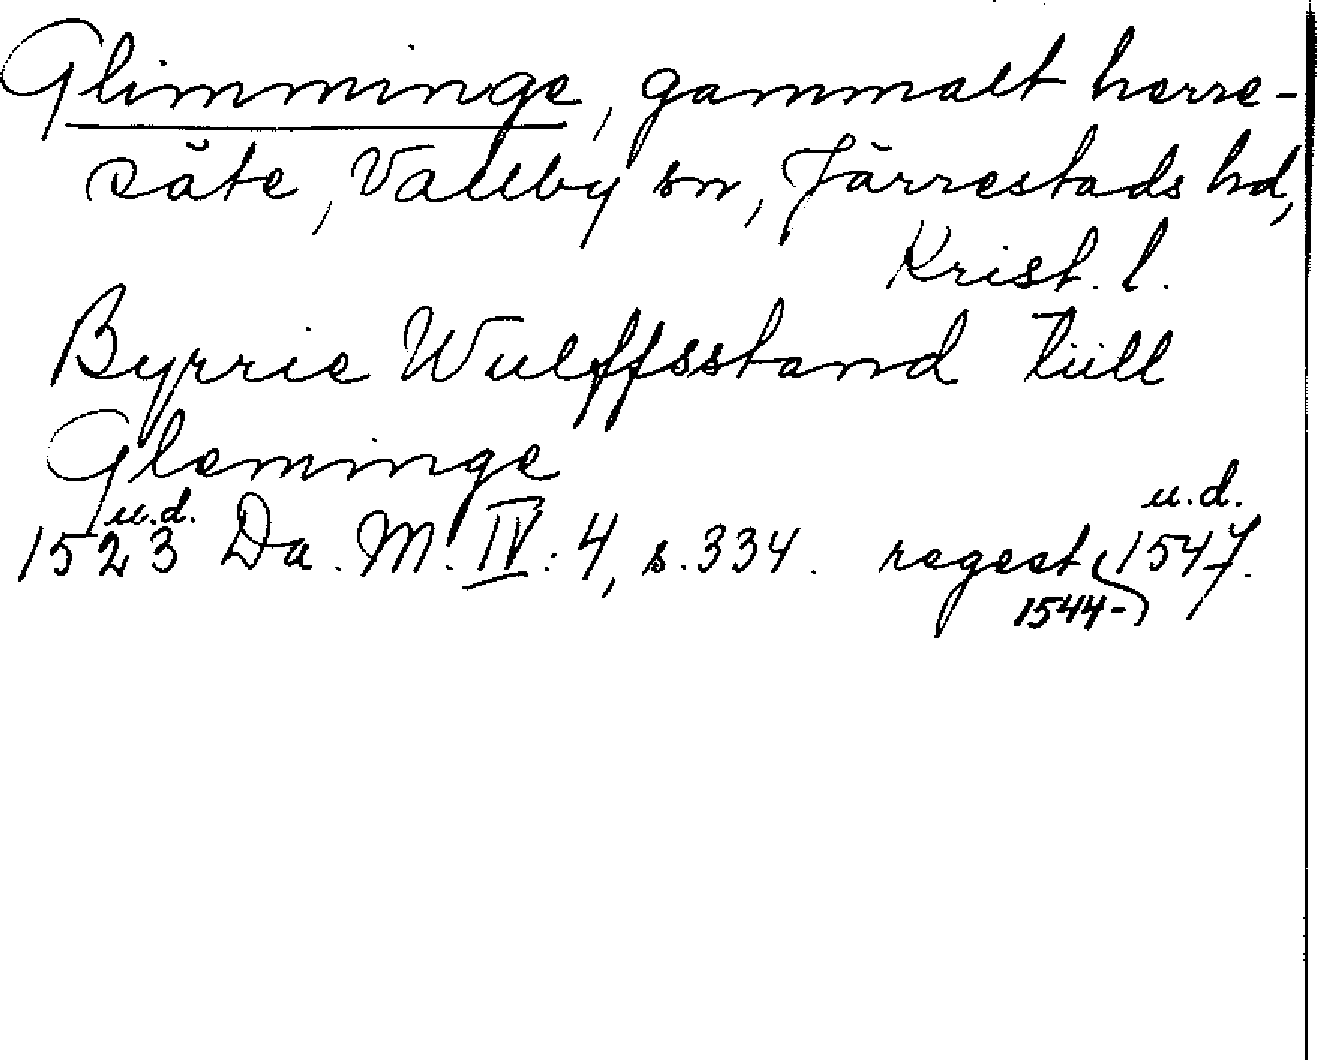 Glimminge, gammalt herre-
säte, Vallby sn, Järrestads hd,
Krist. l.
Byrrie Wulffsstand tiill
Gleminge
u.d. u.d.
1523 Da. M. IV: 4, s. 334. regest 1547.
1544-